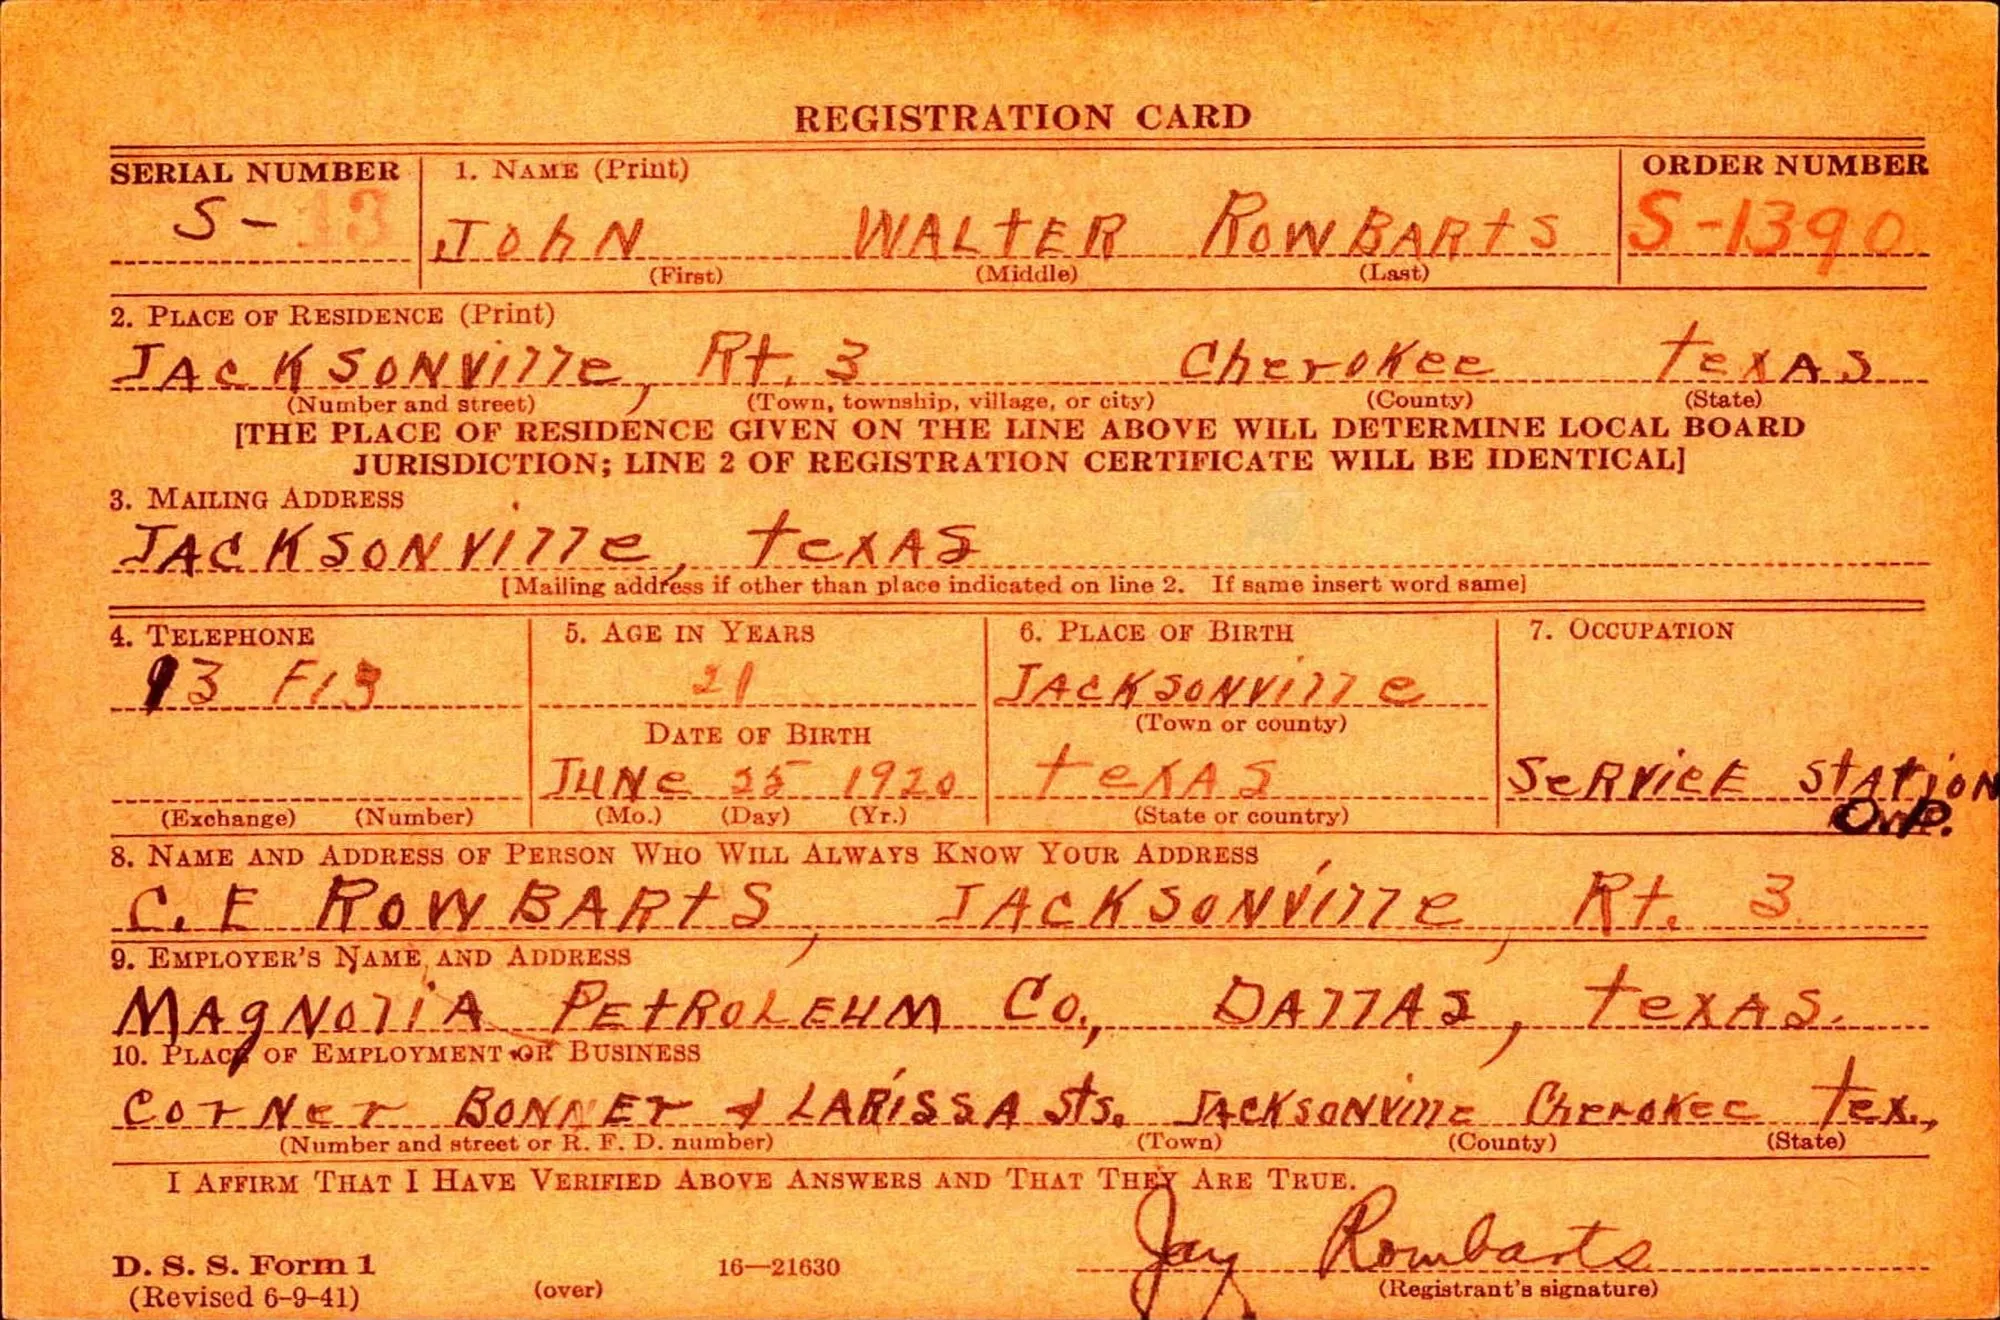 REGISTRATION CARD
SERIAL NUMBER 1. NAME (Print) ORDER NUMBER
S- 13 JOhN WALtER ROWBARtS S-1390
(First) (Middle) (Last)
2. PLACE OF RESIDENCE (Print)
JAcKSONVille, Rt. 3 CheroKee texAS
(Number and street) (Town, township, village, or city) (County) (State)
[THE PLACE OF RESIDENCE GIVEN ON THE LINE ABOVE WILL DETERMINE LOCAL BOARD
JURISDICTION; LINE 2 OF REGISTRATION CERTIFICATE WILL BE IDENTICAL]
3. MAILING ADDRESS
JACKSONVille, texAS
[Mailing address if other than place indicated on line 2. If same insert word same]
4. TELEPHONE 5. AGE IN YEARS 6. PLACE OF BIRTH 7. OCCUPATION
93 F13 21 JAcKSONVille
DATE OF BIRTH (Town or county)
JUNe 25 1920 teXAS SeRVicE StAtioN
(Exchange) (Number) (Mo.) (Day) (Yr.) (State or country) O.P.
8. NAME AND ADDRESS OF PERSON WHO WILL ALWAYS KNOW YOUR ADDRESS
C. E ROWBARtS, JACKSONVille, Rt. 3
9. EMPLOYER'S NAME AND ADDRESS
MAgNoliA PEtROLEUM Co., DAllAS, texAS.
10. PLACE OF EMPLOYMENT OR BUSINESS
CorNer BONNEr & LARiSSA Sts. JACKSONVille CherokEe tex.,
(Number and street or R. F. D. number) (Town) (County) (State)
I AFFIRM THAT I HAVE VERIFIED ABOVE ANSWERS AND THAT THEY ARE TRUE.
Jay Rowbarts
D. S. S. Form 1 16—21630
(Revised 6-9-41) (over) (Registrant's signature)